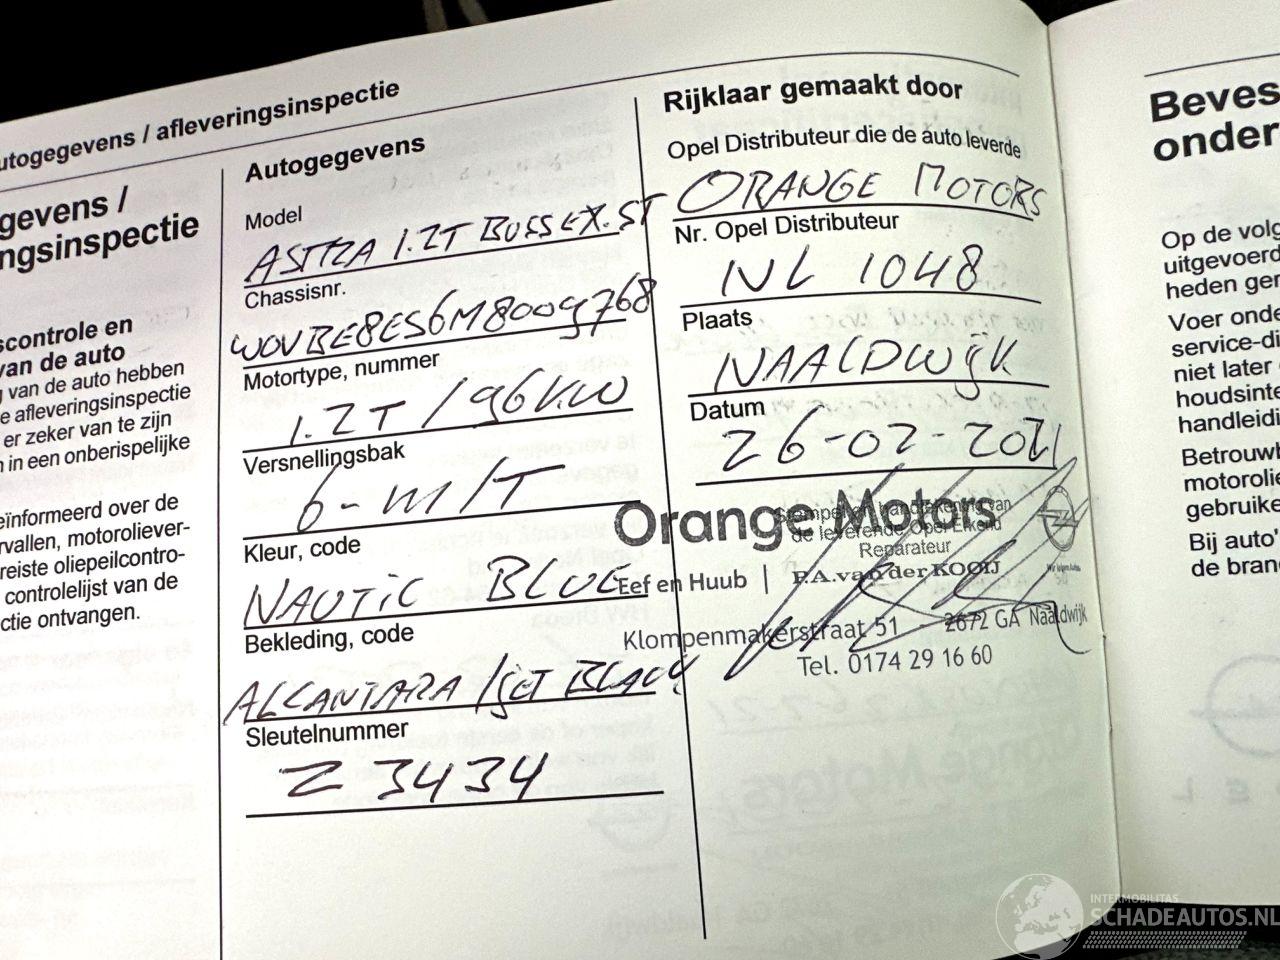 utogegevens / afleveringsinspectie
gevens /
ngsinspectie
scontrole en
van de auto
van de auto hebben
e afleveringsinspectie
er zeker van te zijn
in een onberispelijke
eïnformeerd over de
rvallen, motoroliever-
reiste oliepeilcontro-
controlelijst van de
ctie ontvangen.
Autogegevens
Model
ASTRA 1.2T BUSS EX.ST
Chassisnr.
WOVBE8ES6M8009768
Motortype, nummer
1.2T / 96KW
Versnellingsbak
6-M/T
Kleur, code
NAUTIC BLUE
Bekleding, code
ALCANTARA / JET BLACK
Sleutelnummer
Z3434
Rijklaar gemaakt door
Opel Distributeur die de auto leverde
ORANGE MOTORS
Nr. Opel Distributeur
NL 1048
Plaats
NAALDWIJK
Datum
26-02-2021
Orange Motors
Stempel en handtekening van
de leverende Opel Erkend
Reparateur
Eef en Huub | P.A. van der KOOIJ
Klompenmakerstraat 51 2672 GA Naaldwijk
Tel. 0174 29 16 60
Beves
onder
Op de volg
uitgevoerd
heden ger
Voer onde
service-di
niet later
houdsinte
handleidi
Betrouwb
motorolie
gebruike
Bij auto'
de bran
INTERMOBILITAS
SCHADEAUTOS.NL